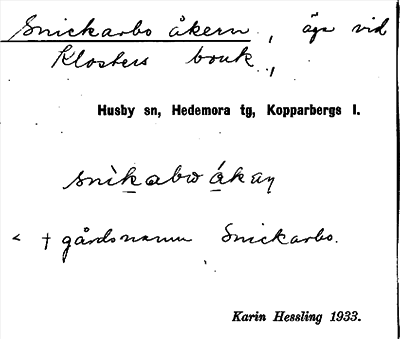 Snickarbo åkern, äga vid
Klosters bruk,
Husby sn, Hedemora tg, Kopparbergs l.
snìkabω ákaṇ
< † gårdsnamn Snickarbo.
Karin Hessling 1933.